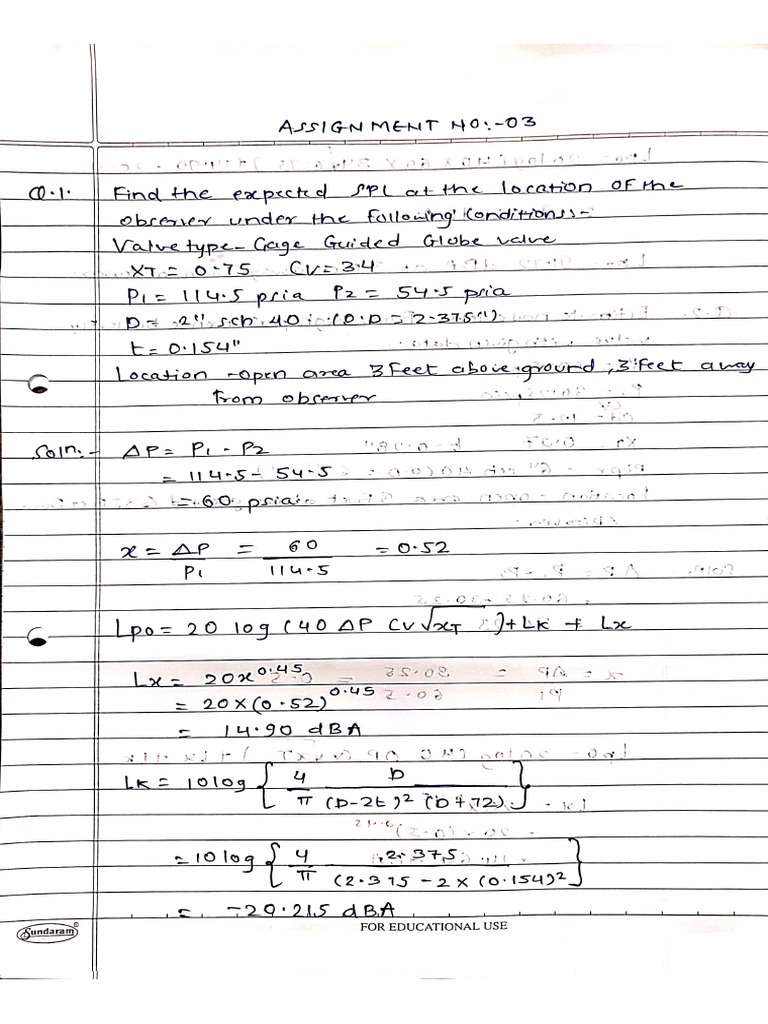 ASSIGNMENT NO:-03
Q.1. Find the expected SPL at the location of the
observer under the following conditions:-
Valve type - Gage Guided Globe valve
XT = 0.75 CV = 3.4
P1 = 114.5 psia P2 = 54.5 psia
D = 2" sch 40 ; (O.D = 2.375")
t = 0.154"
Location - open area 3 feet above ground, 3 feet away
from observer
Soln:- ΔP = P1 - P2
= 114.5 - 54.5
= 60 psia
x = ΔP/P1 = 60/114.5 = 0.52
Lpo = 20 log (40 ΔP CV √XT ) + LK + Lx
Lx = 20x^0.45
= 20 × (0.52)^0.45
= 14.90 dBA
LK = 10 log { 4/π D/(D-2t)² (D+72) }
= 10 log { 4/π 2.375/(2.375 - 2 × (0.154)² }
= -29.215 dBA
Sundaram
FOR EDUCATIONAL USE